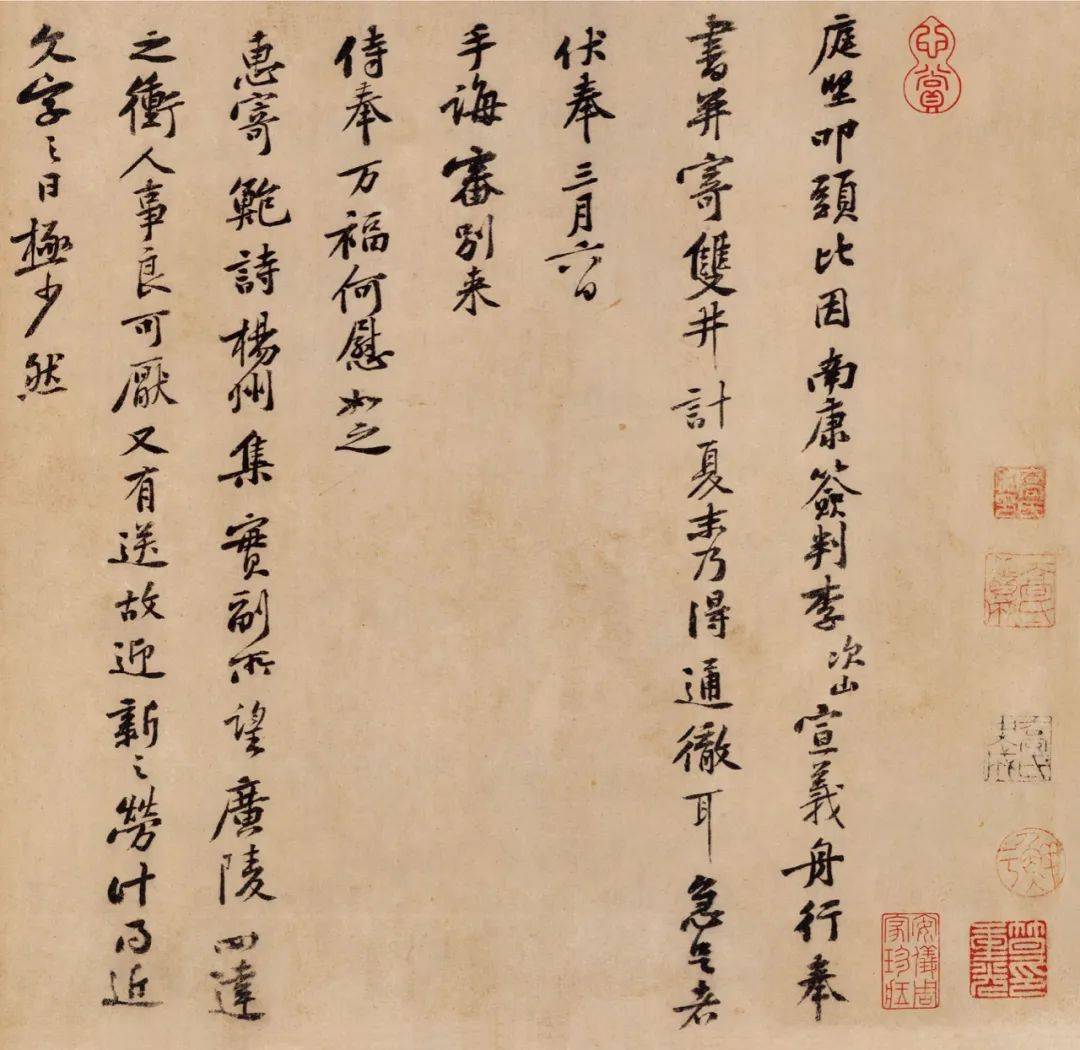 心賞
庭堅叩頭比因南康簽判李次山宣義舟行奉
書并寄雙井計夏末乃得通徹耳急足者
伏奉三月六日
手誨審別来
侍奉万福何慰如之
惠寄鮑詩楊州集實副所望廣陵四達
之衝人事良可厭又有送故迎新之勞計得近
文字之日極少然
安儀周家珍藏